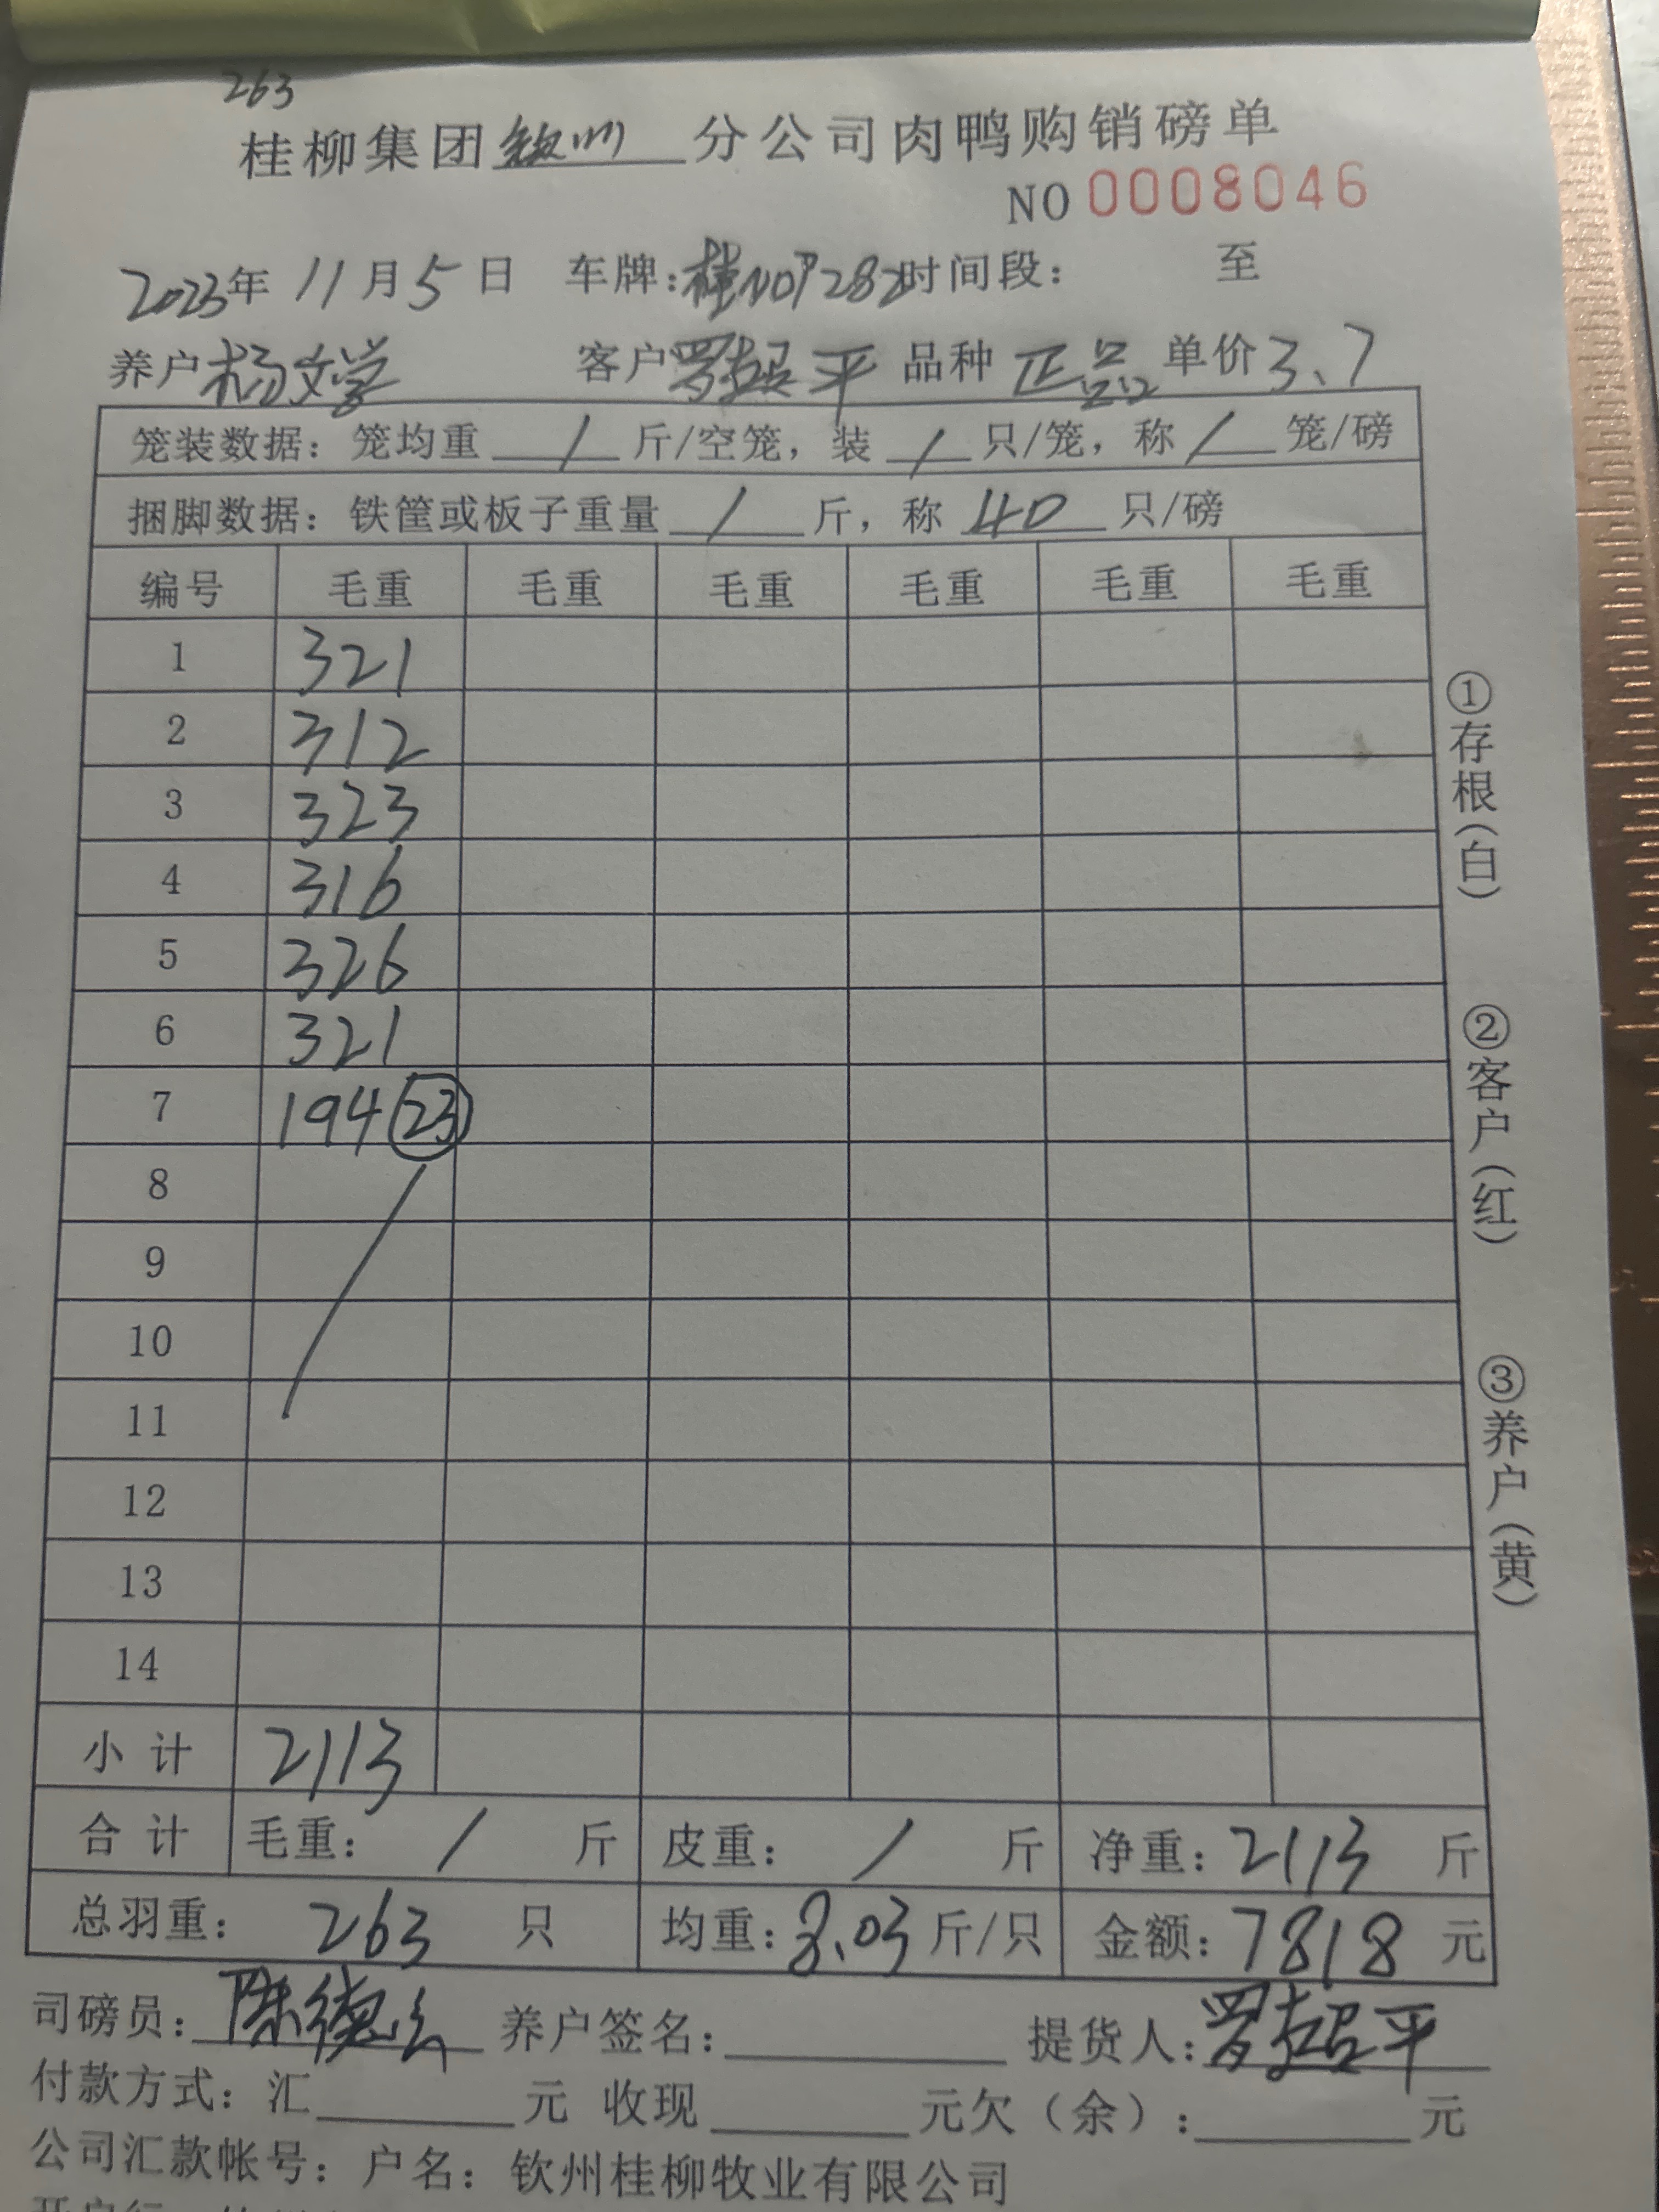 263
桂柳集团钦州分公司肉鸭购销磅单
NO 0008046
2023年 11月5日 车牌:桂NOP282时间段: 至
养户杨文学 客户罗超平 品种 正品 单价3.7
笼装数据:笼均重 / 斤/空笼,装 / 只/笼,称 / 笼/磅
捆脚数据:铁筐或板子重量 / 斤,称 40 只/磅
编号 毛重 毛重 毛重 毛重 毛重 毛重
1 321
2 312
3 323
4 316
5 326
6 321
7 194 23
8
9
10
11
12
13
14
小计 2113
合计 毛重: / 斤 皮重: / 斤 净重:2113 斤
总羽重: 263 只 均重:8.03 斤/只 金额:7818 元
司磅员:陈德 养户签名: 提货人:罗超平
付款方式:汇 元 收现 元欠(余): 元
公司汇款帐号:户名:钦州桂柳牧业有限公司
①存根(白) ②客户(红) ③养户(黄)